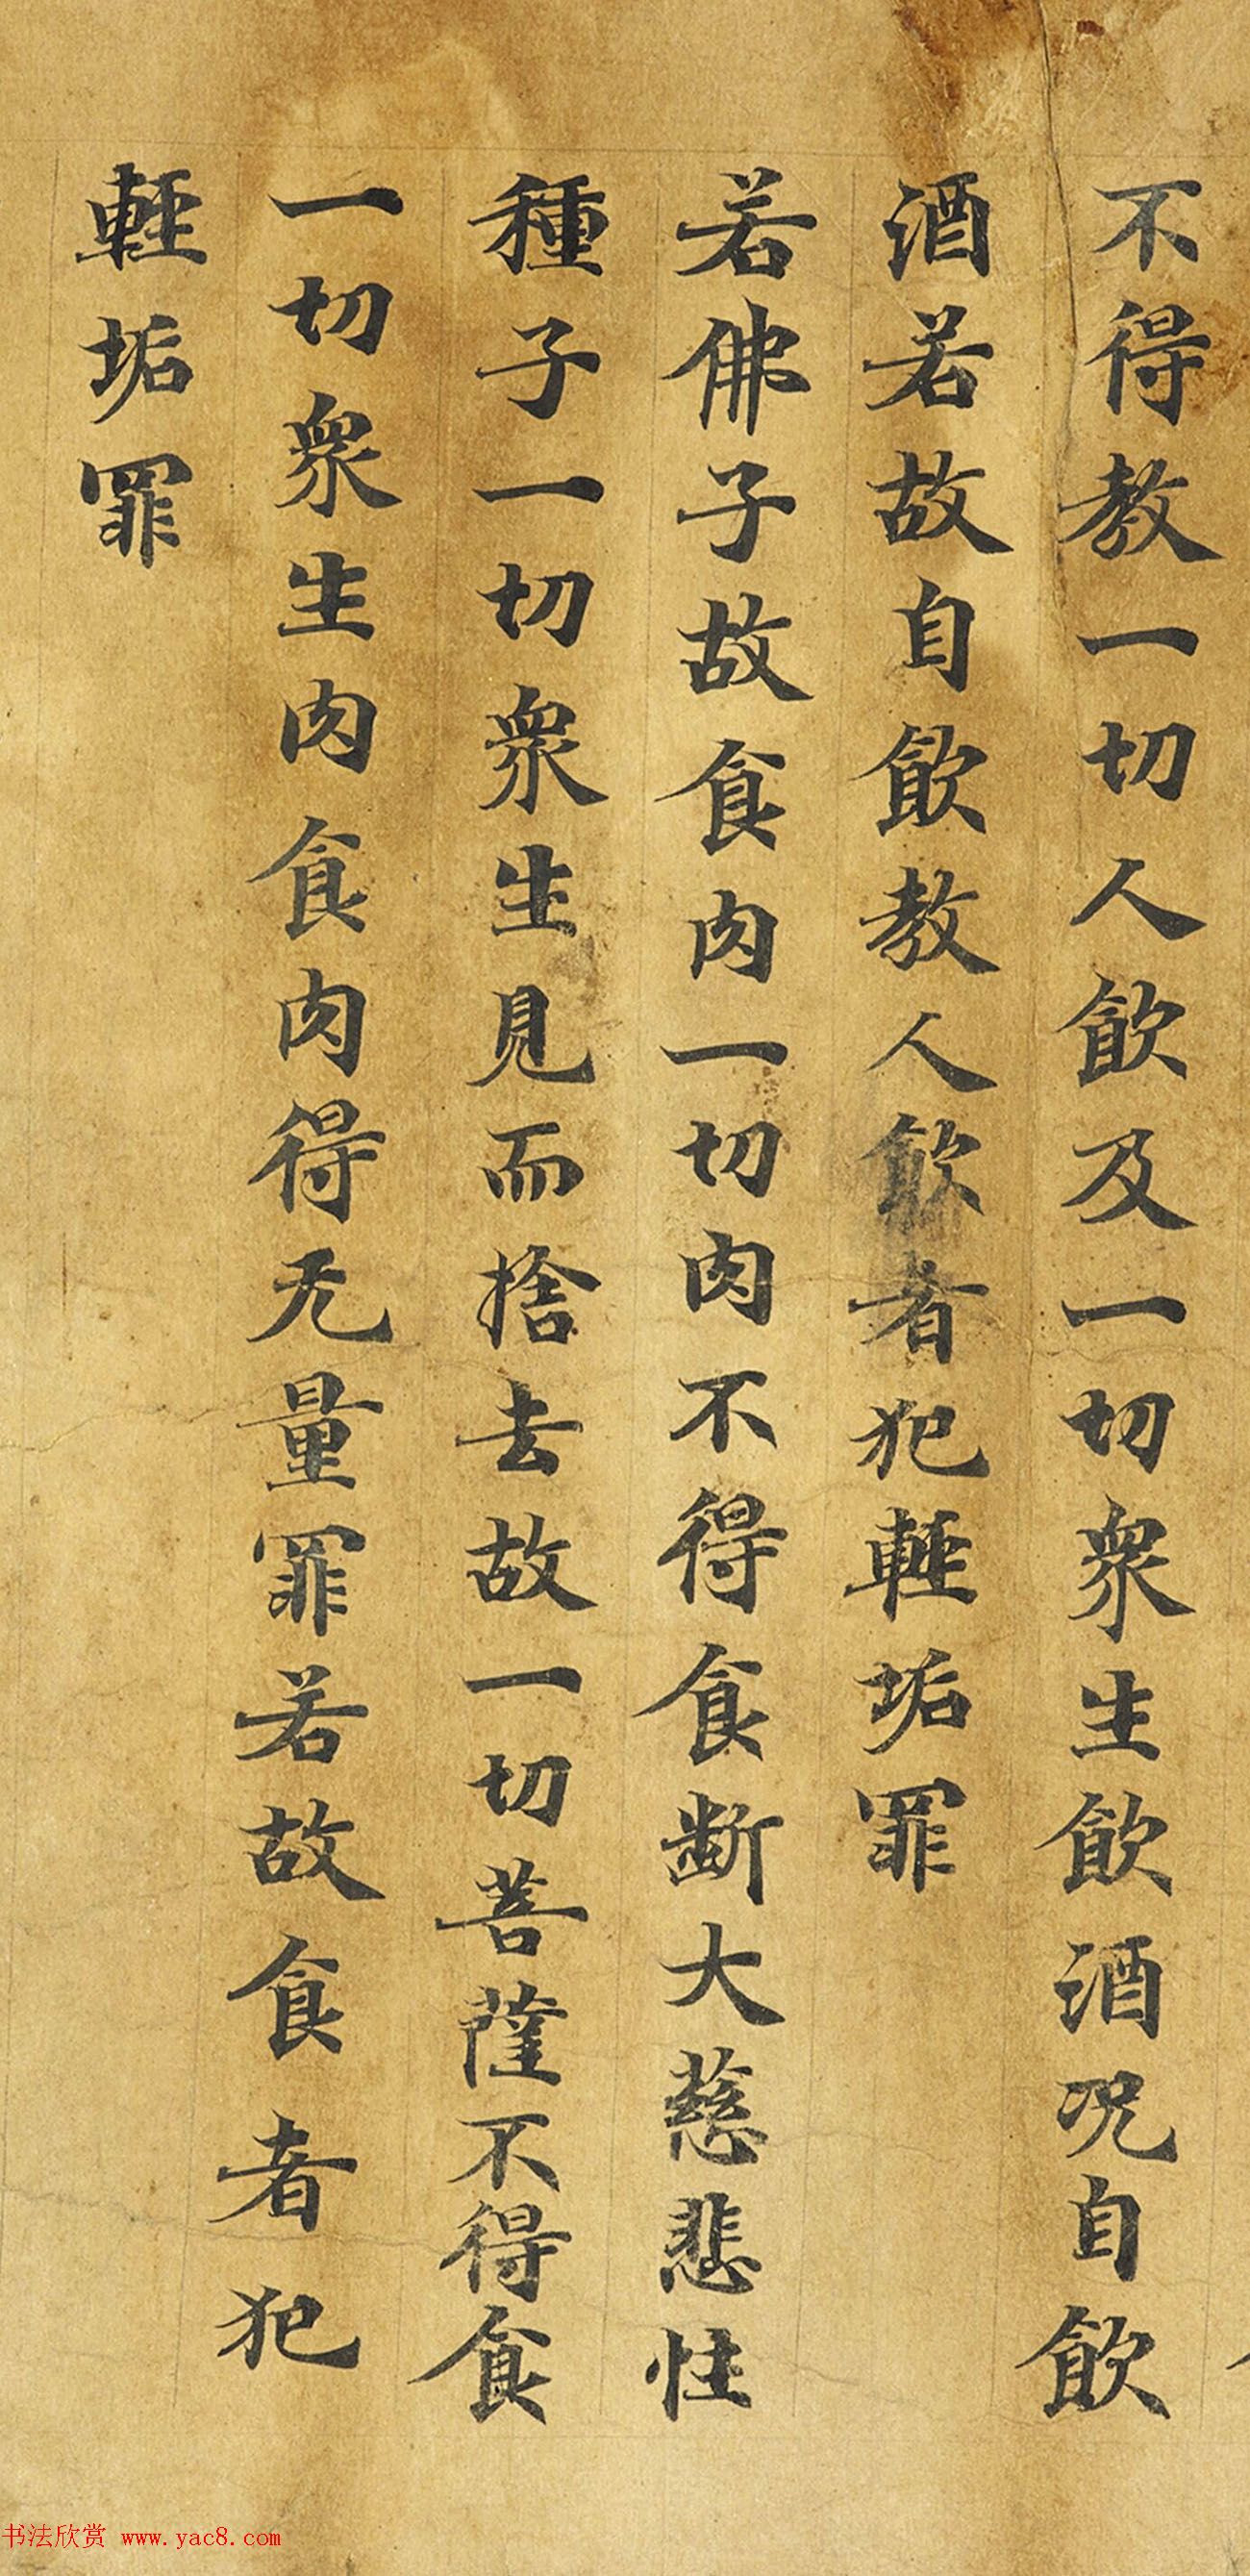 不得教一切人飲及一切衆生飲酒況自飲
酒若故自飲教人飲者犯輕垢罪
若佛子故食肉一切肉不得食斷大慈悲性
種子一切衆生見而捨去故一切菩薩不得食
一切衆生肉食肉得无量罪若故食者犯
輕垢罪
书法欣赏 www.yac8.com